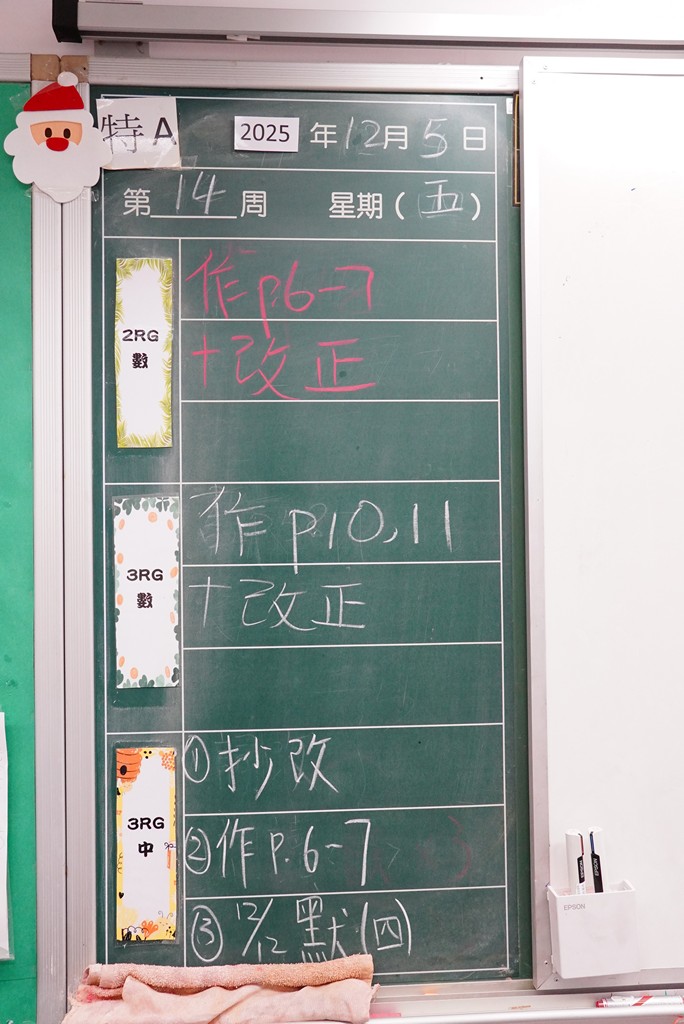 特A
2025 年12月5日
第 14 周 星期(五)
2RG
數
作 p.6-7
+改正
3RG
數
作 p.10,11
+改正
3RG
中
①抄改
②作 p.6-7
③12/12 默(四)
EPSON